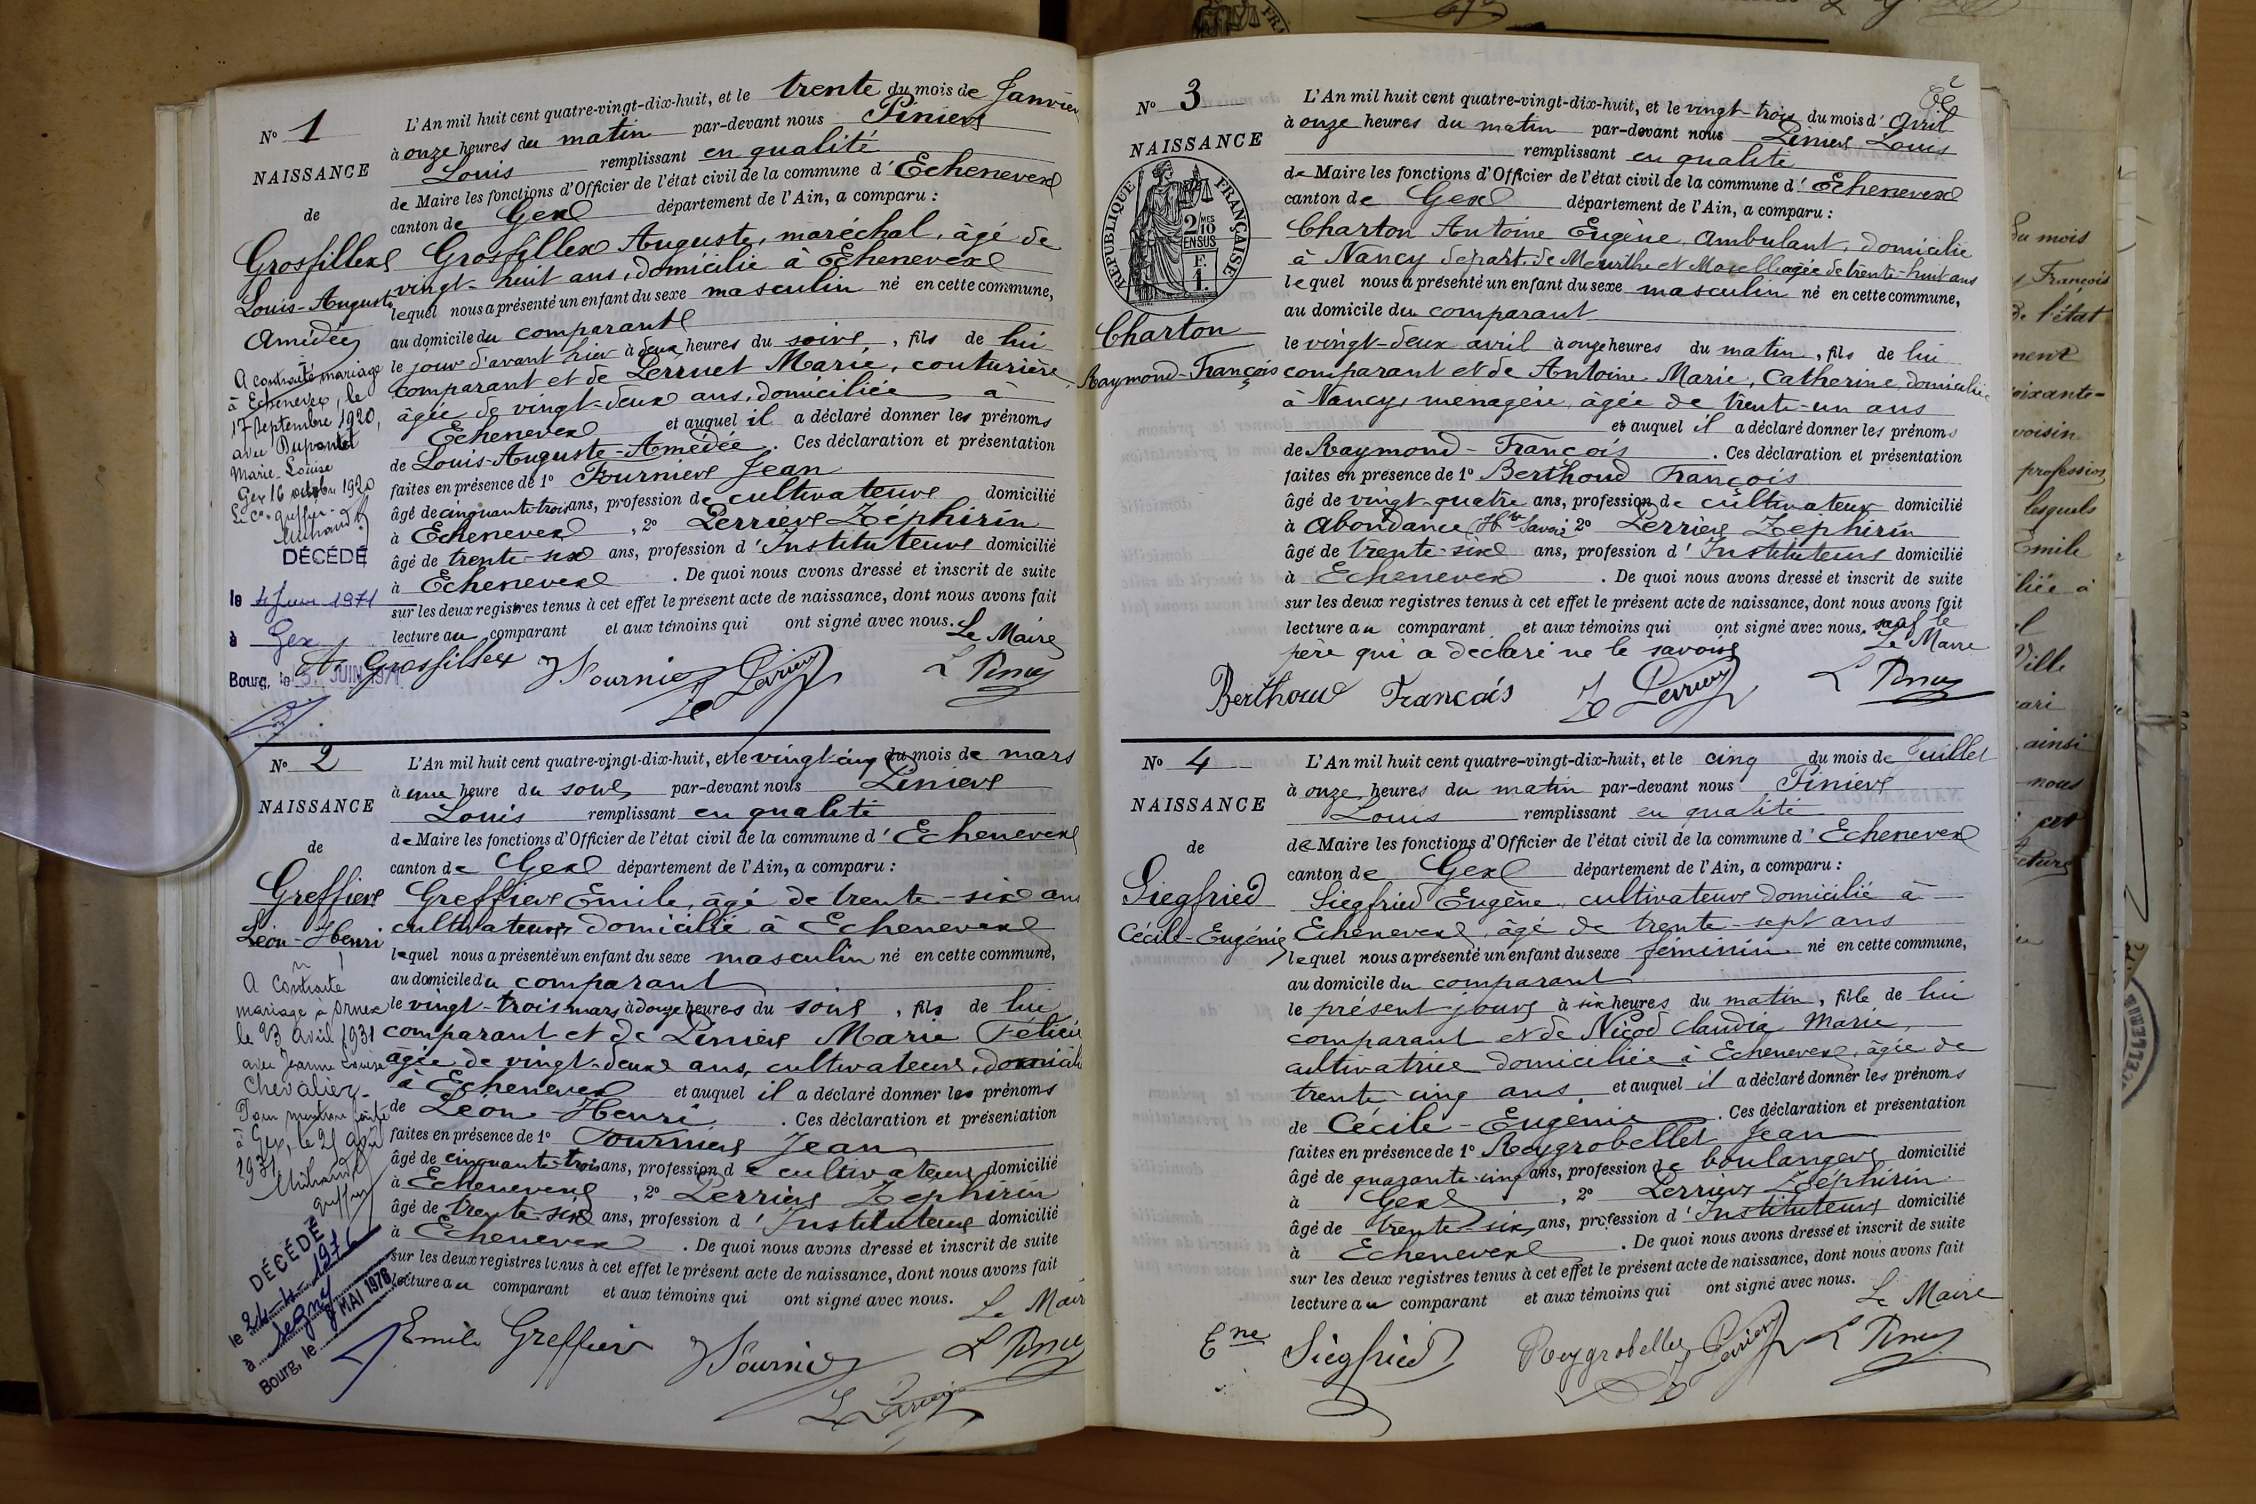 N° 1
NAISSANCE
de
Grosfillex
Louis-Auguste
Amédée
A contracté mariage
à Echenevex, le
17 Septembre 1920,
avec Dupontet
Marie-Louise
Gex 16 octobre 1920
Le Cis greffier
DÉCÉDÉ
le 4 Juin 1971
à Gex
Bourg, le 5 JUIN 1971
L'An mil huit cent quatre-vingt-dix-huit, et le trente du mois de Janvier
à onze heures du matin par-devant nous Piniers
Louis remplissant en qualité
de Maire les fonctions d'Officier de l'état civil de la commune d'Echenevex
canton de Gex département de l'Ain, a comparu :
Grosfillex Auguste, maréchal, âgé de
vingt-huit ans, domicilié à Echenevex
lequel nous a présenté un enfant du sexe masculin né en cette commune,
au domicile du comparant
le jour d'avant hier à deux heures du soir, fils de lui
comparant et de Perruet Marie, couturière,
âgée de vingt-deux ans, domiciliée à
Echenevex et auquel il a déclaré donner les prénoms
de Louis-Auguste-Amédée. Ces déclaration et présentation
faites en présence de 1° Fournier Jean
âgé de cinquante-trois ans, profession de cultivateur domicilié
à Echenevex, 2° Perrier Zéphirin
âgé de trente-six ans, profession d'Instituteur domicilié
à Echenevex. De quoi nous avons dressé et inscrit de suite
sur les deux registres tenus à cet effet le présent acte de naissance, dont nous avons fait
lecture au comparant et aux témoins qui ont signé avec nous. Le Maire
A Grosfillex J Fournier Z Perrier L Pinier
N° 2
NAISSANCE
de
Greffier
Léon-Henri
A contracté
mariage à Ornex
le 23 avril 1931
avec Jeanne Louise
Chevalier
Pour mention
à Gex, le 25 août
1931
greffier
DÉCÉDÉ
le 24.4.1976
à Segny
Bourg, le MAI 1976
L'An mil huit cent quatre-vingt-dix-huit, et le vingt-cinq du mois de mars
à une heure du soir par-devant nous Piniers
Louis remplissant en qualité
de Maire les fonctions d'Officier de l'état civil de la commune d'Echenevex
canton de Gex département de l'Ain, a comparu :
Greffier Emile, âgé de trente-six ans
cultivateur, domicilié à Echenevex
lequel nous a présenté un enfant du sexe masculin né en cette commune,
au domicile du comparant
le vingt-trois mars à douze heures du soir, fils de lui
comparant et de Piniers Marie Félicie
âgée de vingt-deux ans, cultivateur, domicilié
à Echenevex et auquel il a déclaré donner les prénoms
de Léon-Henri. Ces déclaration et présentation
faites en présence de 1° Fournier Jean
âgé de cinquante-trois ans, profession de cultivateur domicilié
à Echenevex, 2° Perrier Zéphirin
âgé de trente-six ans, profession d'Instituteur domicilié
à Echenevex. De quoi nous avons dressé et inscrit de suite
sur les deux registres tenus à cet effet le présent acte de naissance, dont nous avons fait
lecture au comparant et aux témoins qui ont signé avec nous. Le Maire
Emile Greffier J Fournier L Pinier
Z Perrier
2
N° 3
NAISSANCE
RÉPUBLIQUE FRANÇAISE
2/10 MES
EN SUS
F.
1.
Charton
Raymond-François
L'An mil huit cent quatre-vingt-dix-huit, et le vingt-trois du mois d'Avril
à onze heures du matin par-devant nous Piniers Louis
remplissant en qualité
de Maire les fonctions d'Officier de l'état civil de la commune d'Echenevex
canton de Gex département de l'Ain, a comparu :
Charton Antoine Eugène, Ambulant, domicilié
à Nancy départ. de Meurthe et Moselle, agée de trente-huit ans
lequel nous a présenté un enfant du sexe masculin né en cette commune,
au domicile du comparant
le vingt-deux avril à onze heures du matin, fils de lui
comparant et de Antoine Marie, Catherine, domiciliée
à Nancy, ménagère, âgée de trente-un ans
et auquel il a déclaré donner les prénoms
de Raymond-François. Ces déclaration et présentation
faites en présence de 1° Berthoud François
âgé de vingt-quatre ans, profession de cultivateur domicilié
à Abondance (Hte Savoie) 2° Perrier Zephirin
âgé de trente-six ans, profession d'Instituteur domicilié
à Echenevex. De quoi nous avons dressé et inscrit de suite
sur les deux registres tenus à cet effet le présent acte de naissance, dont nous avons fait
lecture au comparant et aux témoins qui ont signé avec nous, sauf le
père qui a déclaré ne le savoir Le Maire
Berthoud François Z Perrier L Pinier
N° 4
NAISSANCE
de
Siegfried
Cécile-Eugénie
L'An mil huit cent quatre-vingt-dix-huit, et le cinq du mois de Juillet
à onze heures du matin par-devant nous Piniers
Louis remplissant en qualité
de Maire les fonctions d'Officier de l'état civil de la commune d'Echenevex
canton de Gex département de l'Ain, a comparu :
Siegfried Eugène, cultivateur domicilié à
Echenevex, âgé de trente-sept ans
lequel nous a présenté un enfant du sexe féminin né en cette commune,
au domicile du comparant
le présent jour à six heures du matin, fille de lui
comparant et de Nicod Claudia Marie,
cultivatrice domiciliée à Echenevex, âgée de
trente-cinq ans, et auquel il a déclaré donner les prénoms
de Cécile-Eugénie. Ces déclaration et présentation
faites en présence de 1° Reygrobellet Jean
âgé de quarante-cinq ans, profession de boulanger domicilié
à Gex, 2° Perrier Zéphirin
âgé de trente-six ans, profession d'Instituteur domicilié
à Echenevex. De quoi nous avons dressé et inscrit de suite
sur les deux registres tenus à cet effet le présent acte de naissance, dont nous avons fait
lecture au comparant et aux témoins qui ont signé avec nous. Le Maire
Ene Siegfried Reygrobellet Z Perrier L Pinier
du mois
François
de l'état
voisin
profession
lesquels
Emile
Ville
ainsi
nous